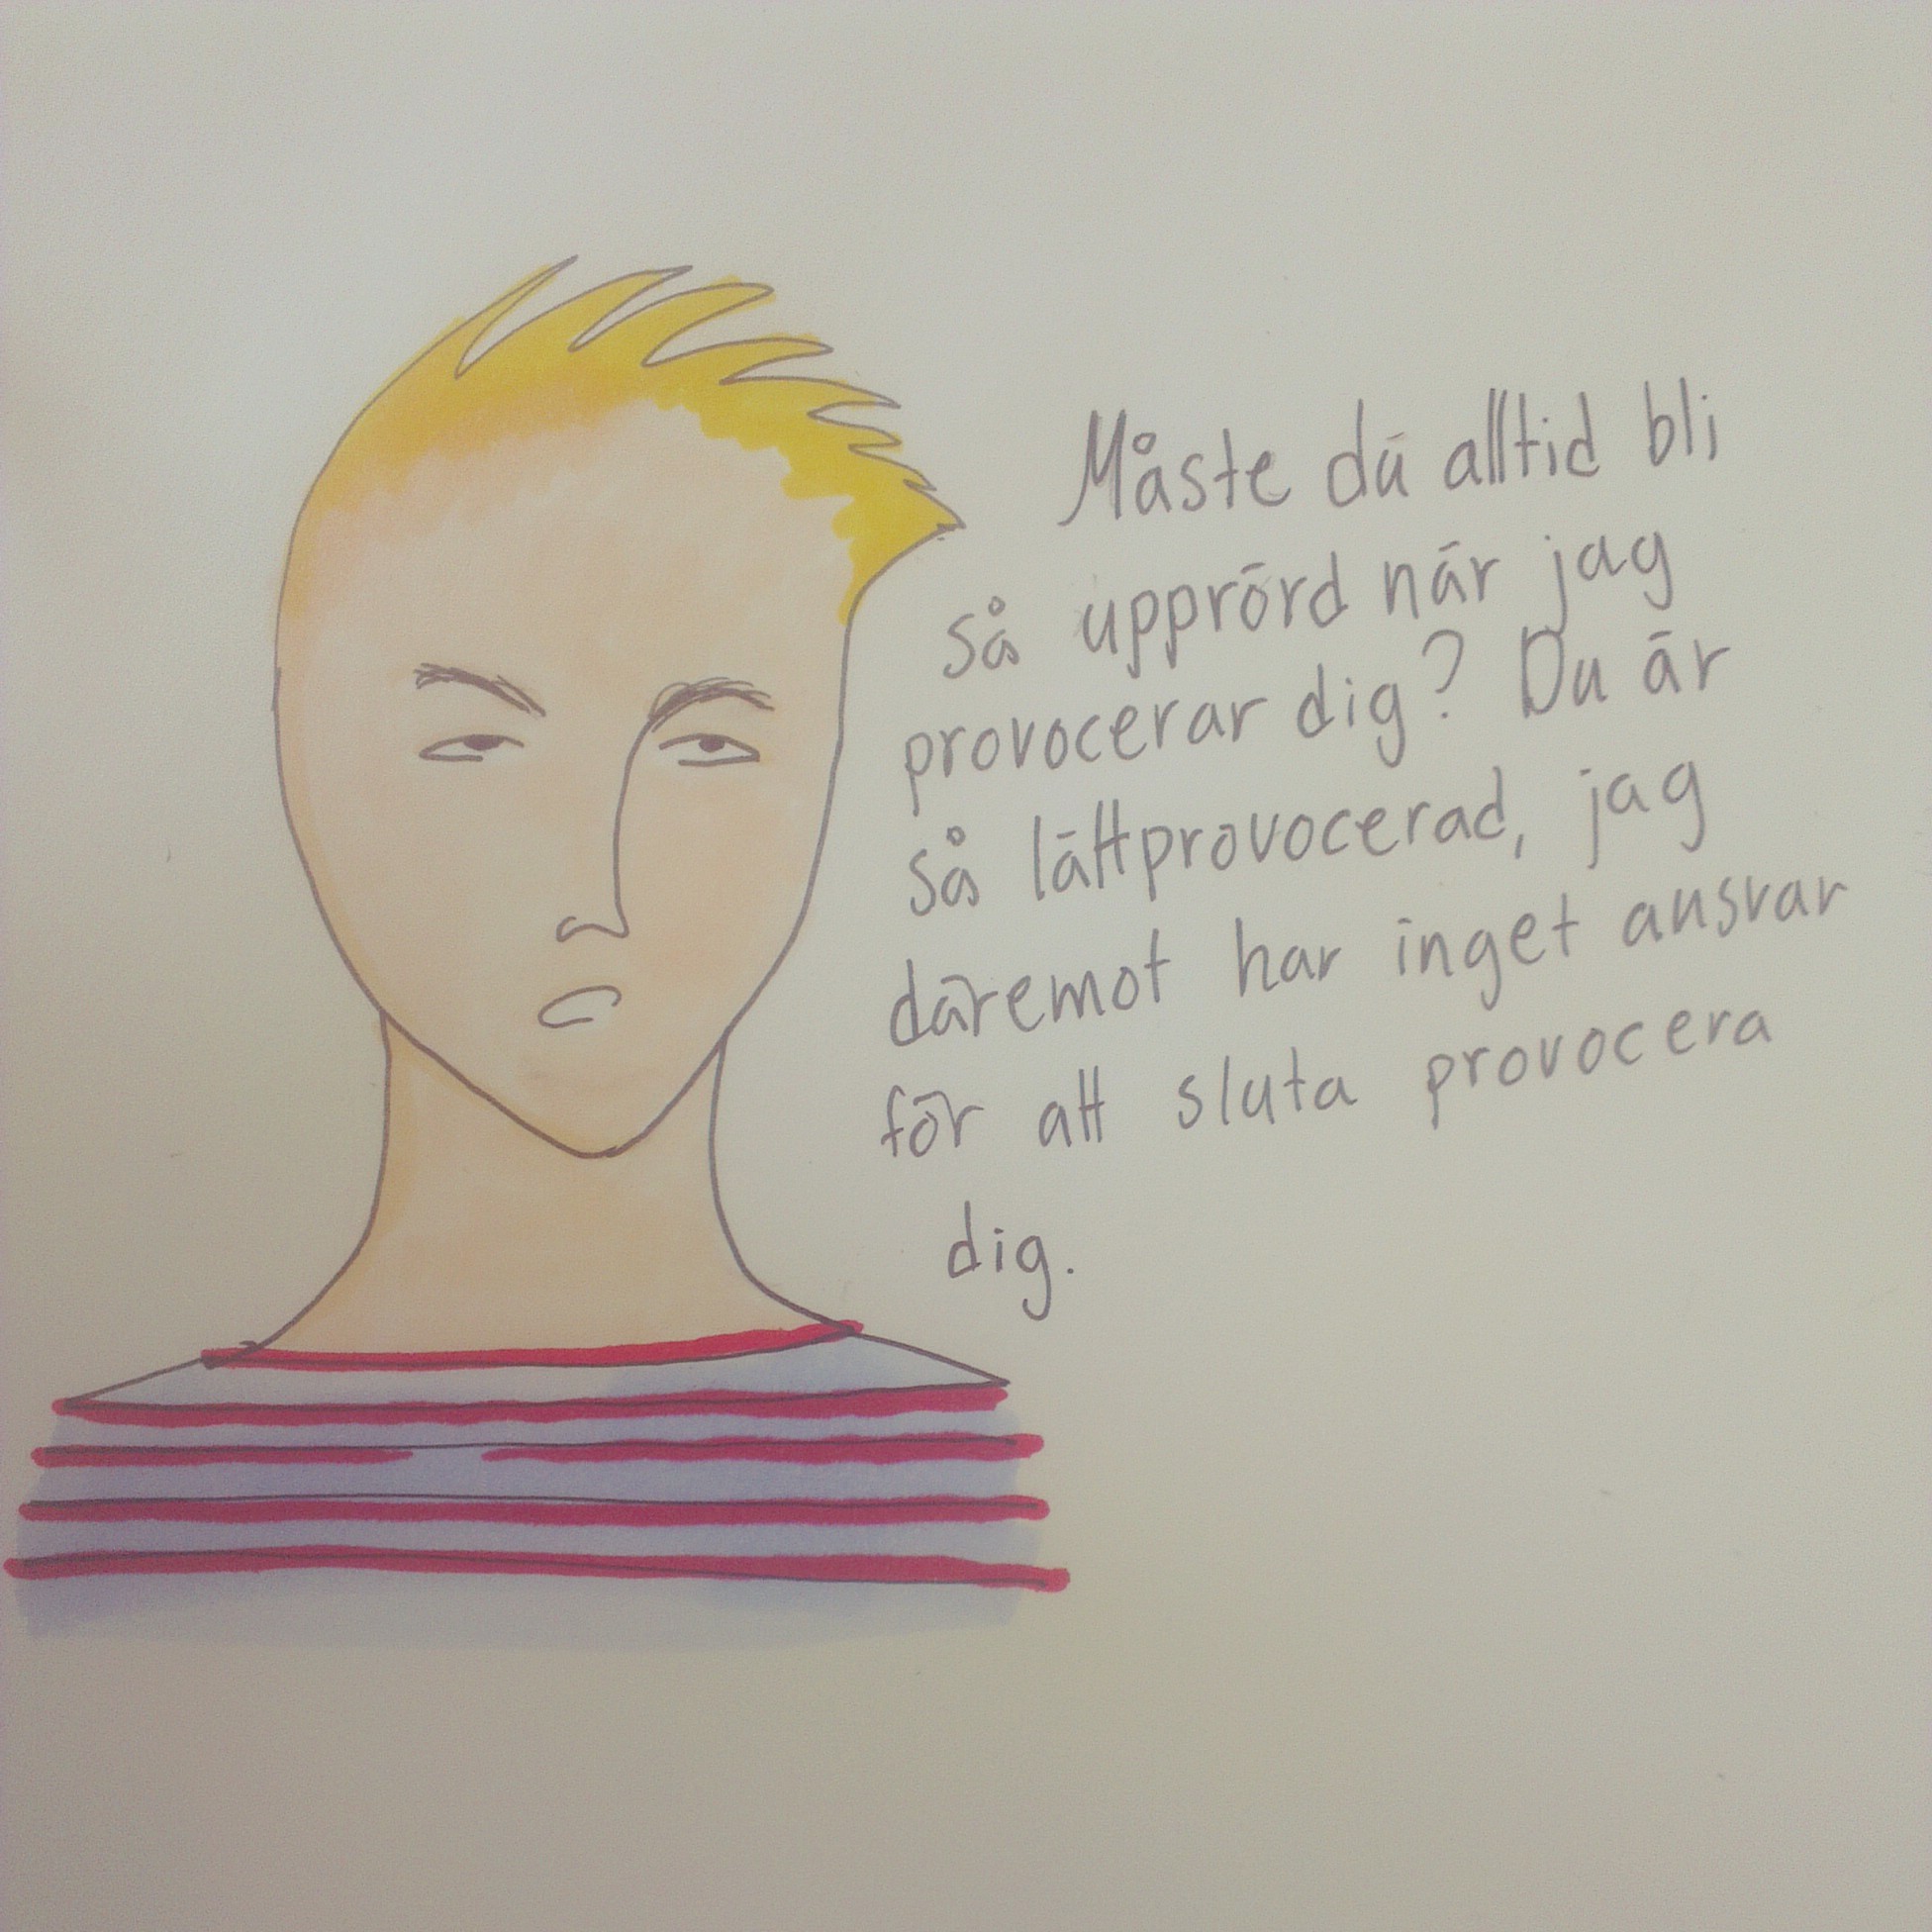 Måste du alltid bli
så upprörd när jag
provocerar dig? Du är
så lättprovocerad, jag
däremot har inget ansvar
för att sluta provocera
dig.